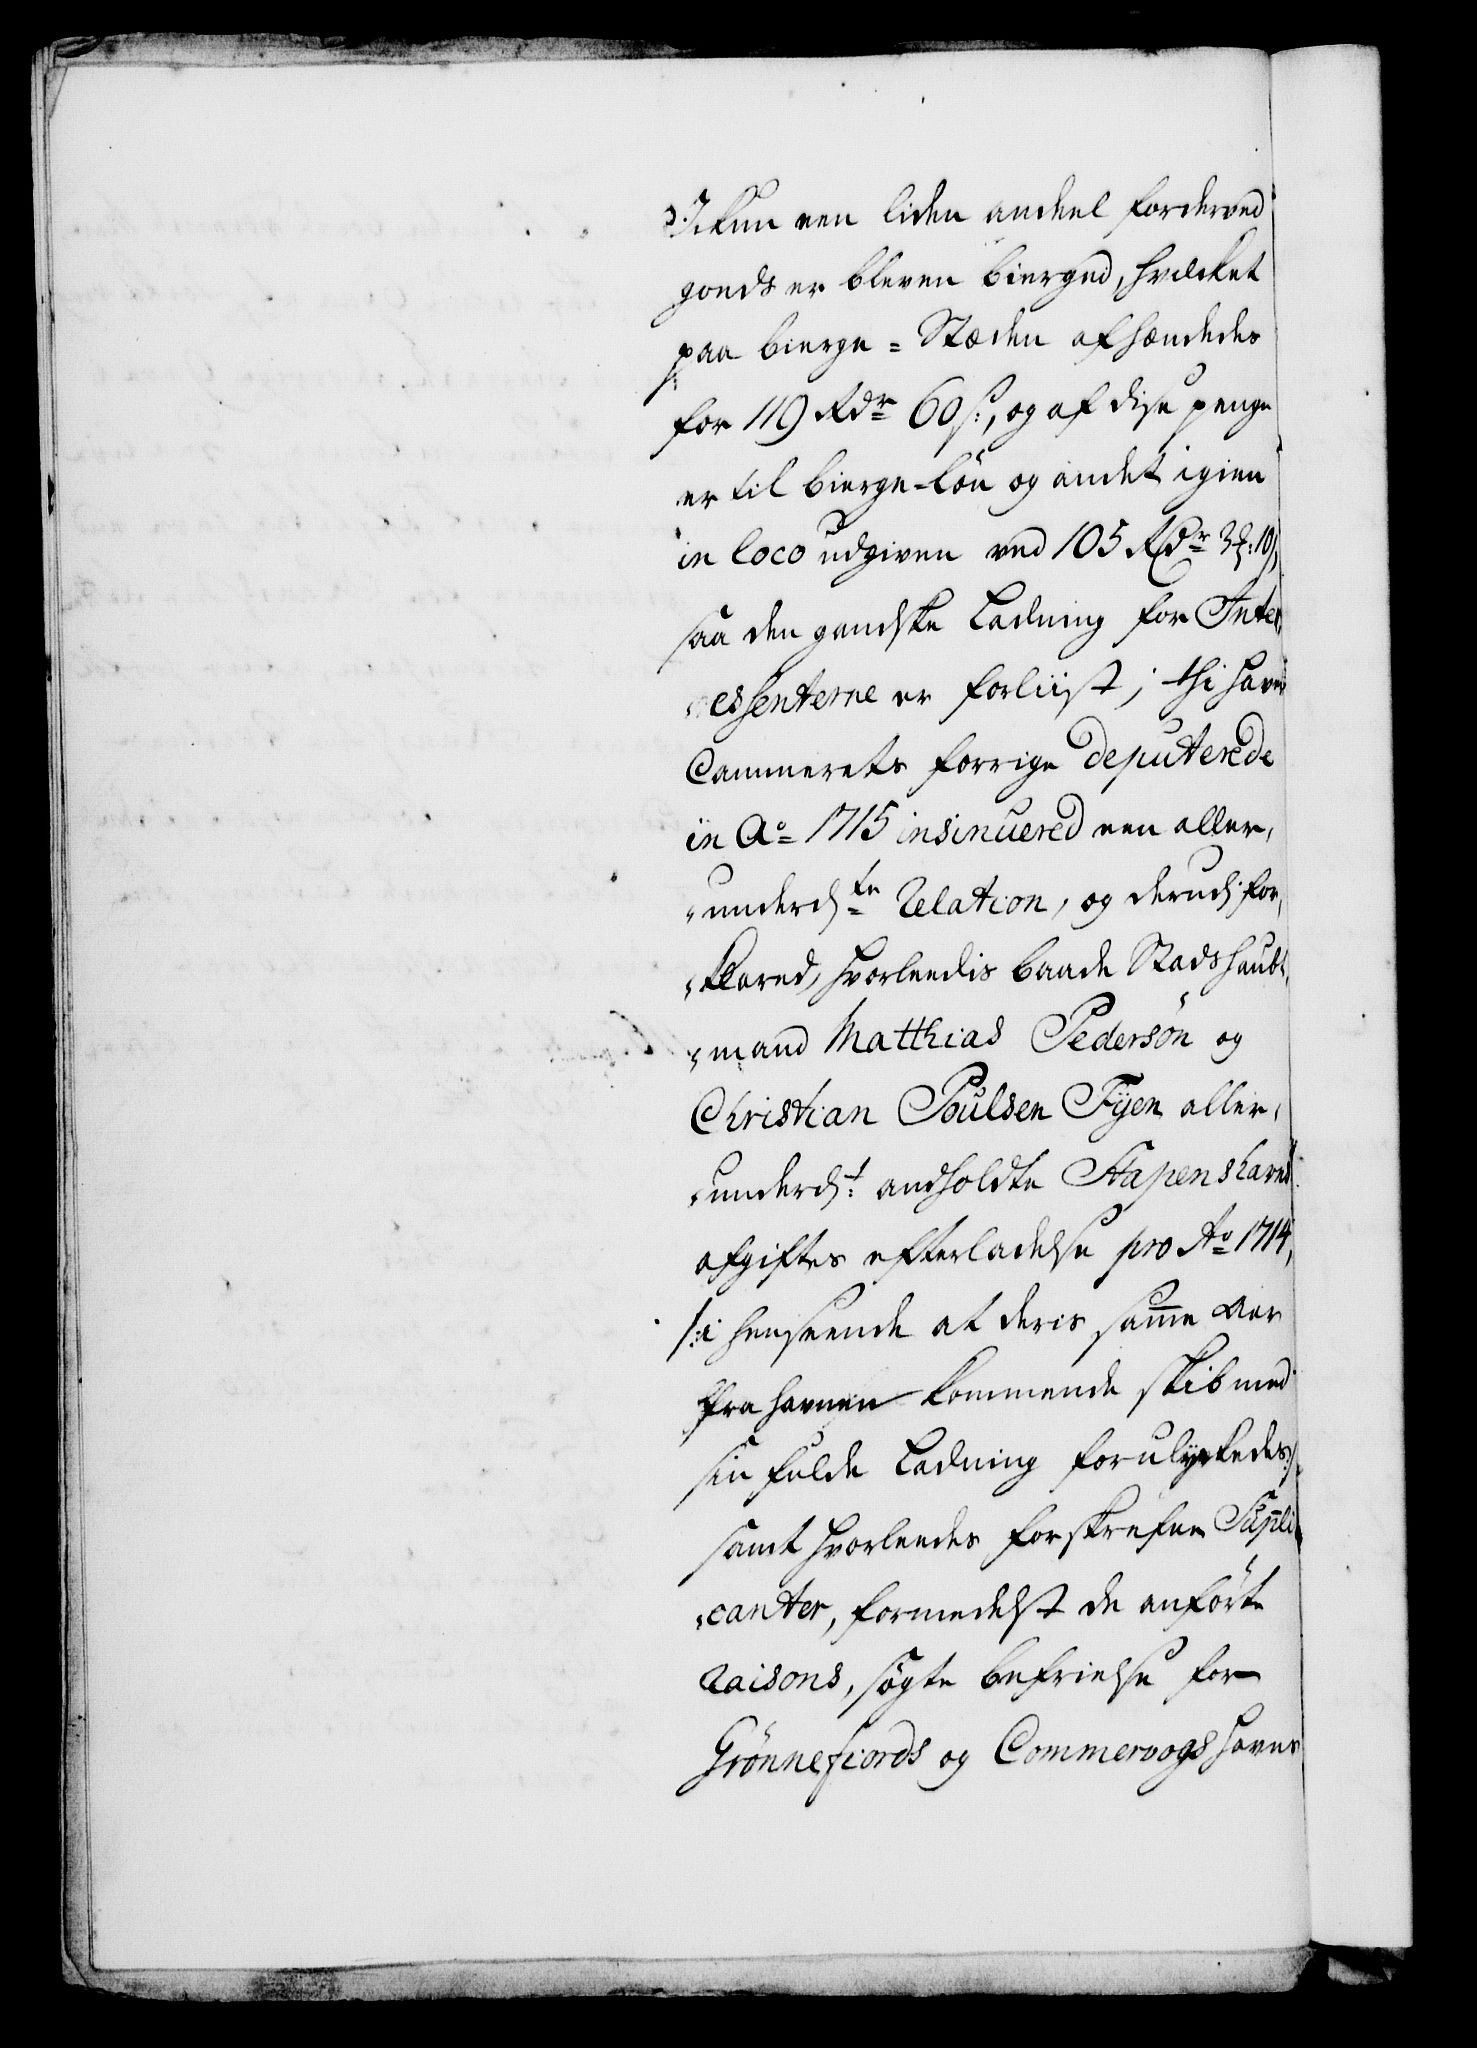 Ikun een liden andeel forderved
goeds er bleven bierged, hvilcket
paa bierge=Stæden afhændedes
for 119 Rdr 60 s:, og af dise penge
er til bierge-lön og andet igien
in loco udgiven ved 105 Rdr 3 m: 10 s,
saa den gandske Ladning for Inter,
,essenterne er forliist; thi haver
Cammerets forrige deputerede
in Ao 1715 insinuered een aller,
,underd:ste Relation, og derudj for,
,klared, hvorleedis baade Stadshaubt,
,mand Matthias Pedersön og
Christian Poulsen Fÿen aller,
,underd:t andholdte Stapenshavns
afgiftes efterladelse pro Ao 1714,
/:i henseende at deris samme Aar
fra havnen kommende skib med
sin fulde Ladning forulykkedes:/
samt hvorleedes forskrefne Suppli
,canter, formedelst de anförte
raisons, sögte befrielse for
Grönnefiords og Commervogs havne